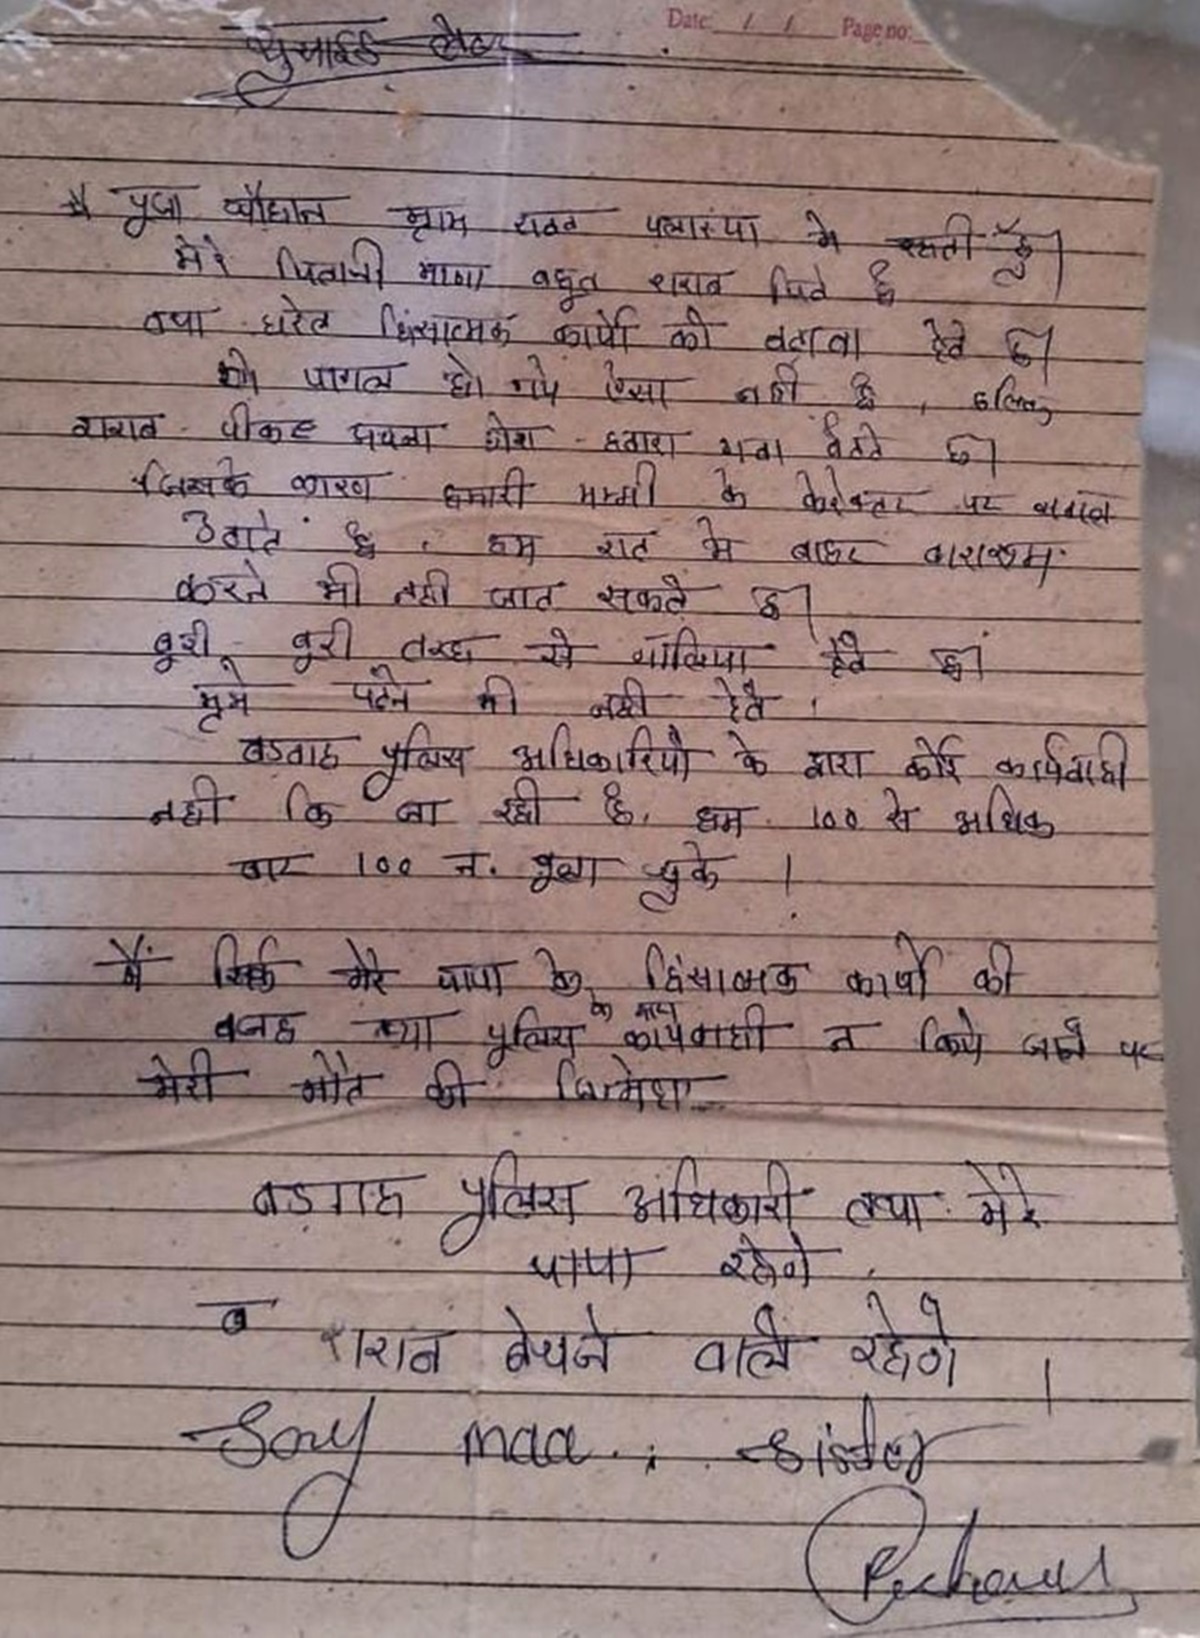 Date: / / Page no:
सुसाईड लेटर
मै पूजा चौहान ग्राम रावत पलास्या मे रहती हूँ।
मेरे पिताजी मामा बहूत शराब पिते है
तथा घरेलु हिंसात्मक कार्यो को बढावा देते है।
वो पागल हो गये ऐसा नहीं है, बल्कि
शराब पीकर अपना होश हवास गवा बैठते है।
जिसके कारण हमारी मम्मी के केरेक्टर पर सवाल
उठाते है, हम रात मे बाहर बाथरूम
करने भी नही जात सकते है।
बूरी बूरी तरह से गालिया देते है।
मुझे पढने भी नही देते।
बडगाह पुलिस अधिकारियो के द्वारा कोई कार्यवाही
नही कि जा रही है, हम 100 से अधिक
बार 100 न. बूला चुके।
मैं सिर्फ मेरे पापा के हिंसात्मक कार्यो की
वजह तथा पुलिस के साथ कार्यवाही न किये जाने पर
मेरी मौत की जिम्मेदा
बडगाह पुलिस अधिकारी तथा मेरे
पापा रहेगे,
व शराब बेचने वाले रहेगे।
Sory maa, sister